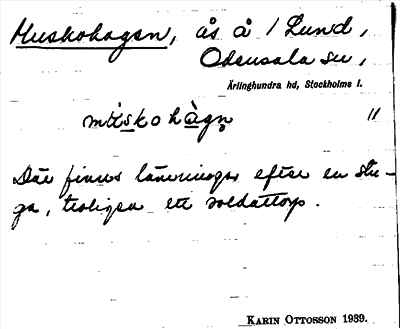 Muskohagen, ås å 1 Lund,
Odensala sn,
Ärlinghundra hd, Stockholms l.
muskohàgn̥ "
Där finns lämningar efter en stu-
ga, troligen ett soldattorp.
KARIN OTTOSSON 1939.